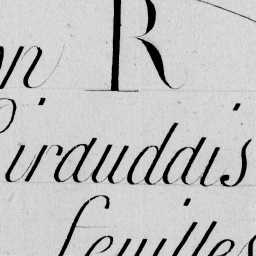 on R
Giraudais
feuilles